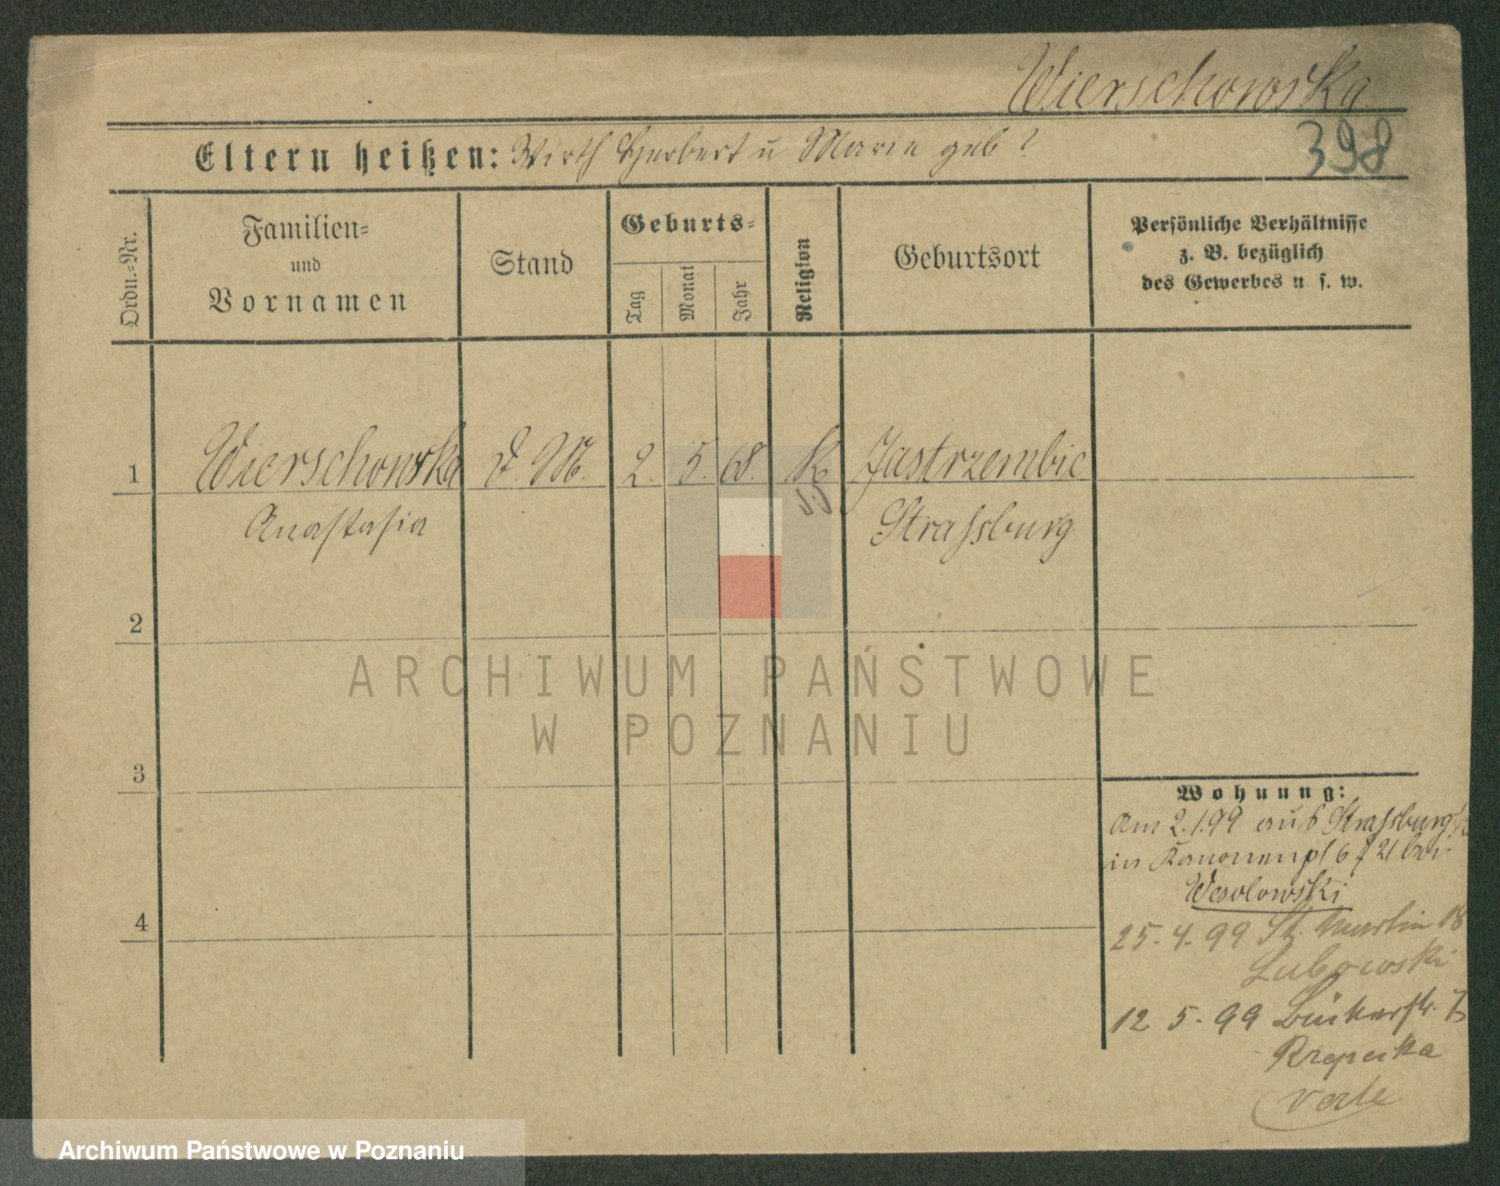 Wierschowska
398
Eltern heißen: Wirth Herbert u Marie geb ?
Ordn.-Nr.
Familien-
und
Vornamen
Stand
Geburts-
Tag
Monat
Jahr
Religion
Geburtsort
Persönliche Verhältnisse
z. B. bezüglich
des Gewerbes u. s. w.
1 Wierschowska d. M. 2. 5. 68. K Jastrzembie
Anastasia Strassburg
2
3
4
ARCHIWUM PAŃSTWOWE
W POZNANIU
Wohnung:
Am 2.1.99 aus Strassburg
in Kanonenpl 6 21 bei
Wesolowski
25. 4. 99 St. Martin 18
Lubowski
12 5. 99
Rzepecka
Archiwum Państwowe w Poznaniu